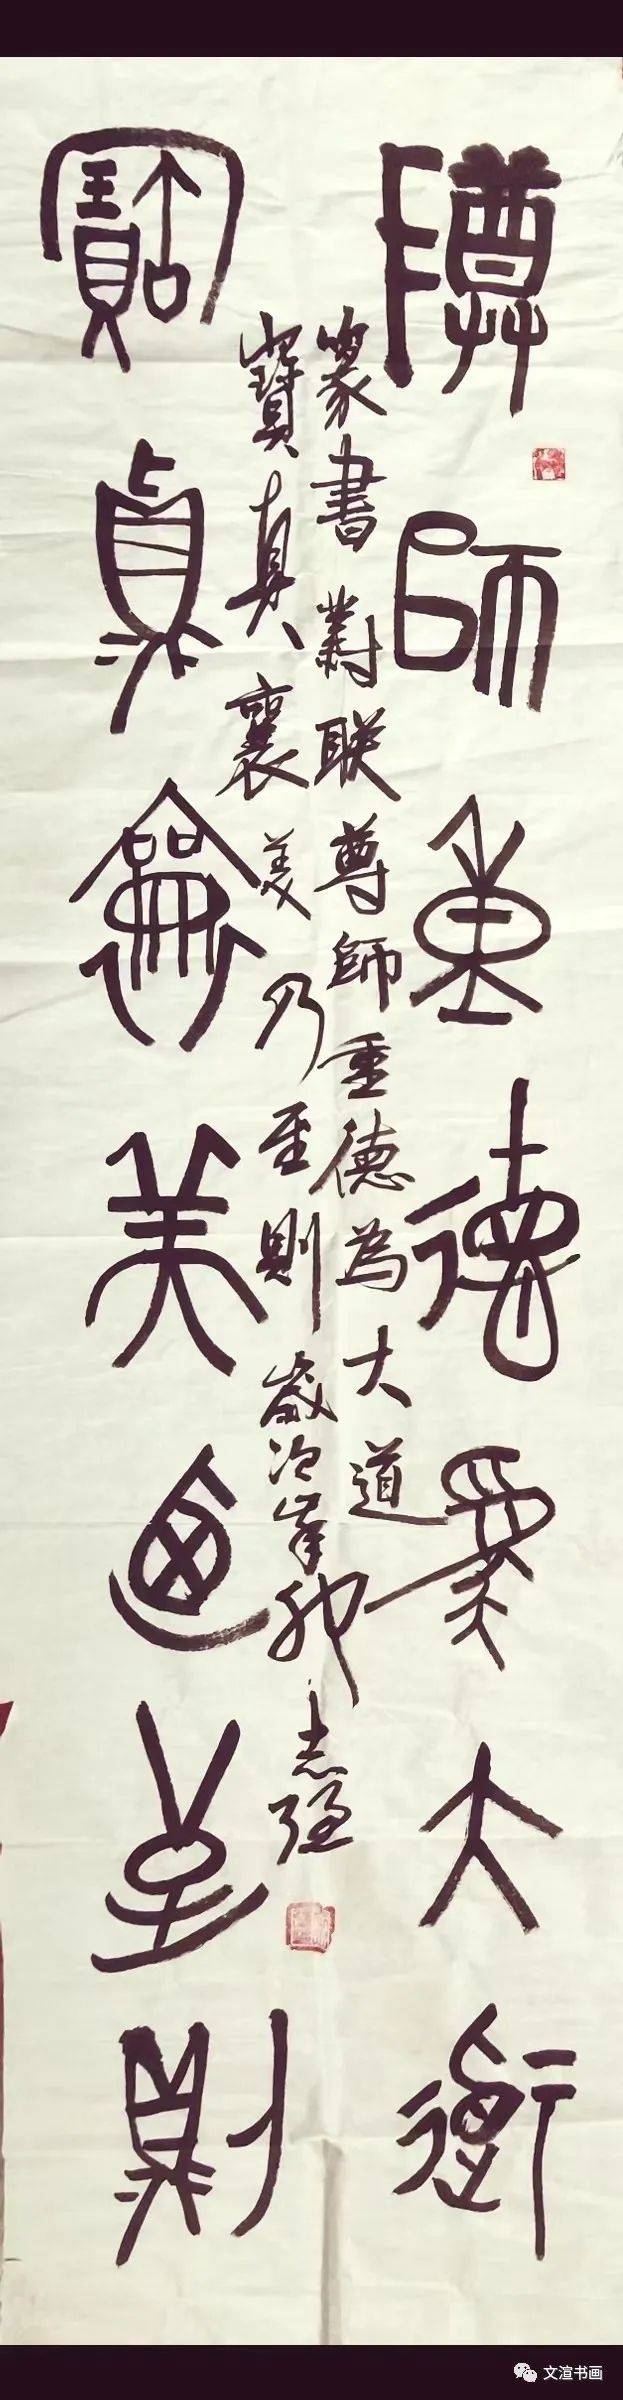 尊師重德為大道
篆書對聯尊師重德為大道
寶真襄美乃至則歲次辛卯志强
寶真襄美迺至則
文渲书画